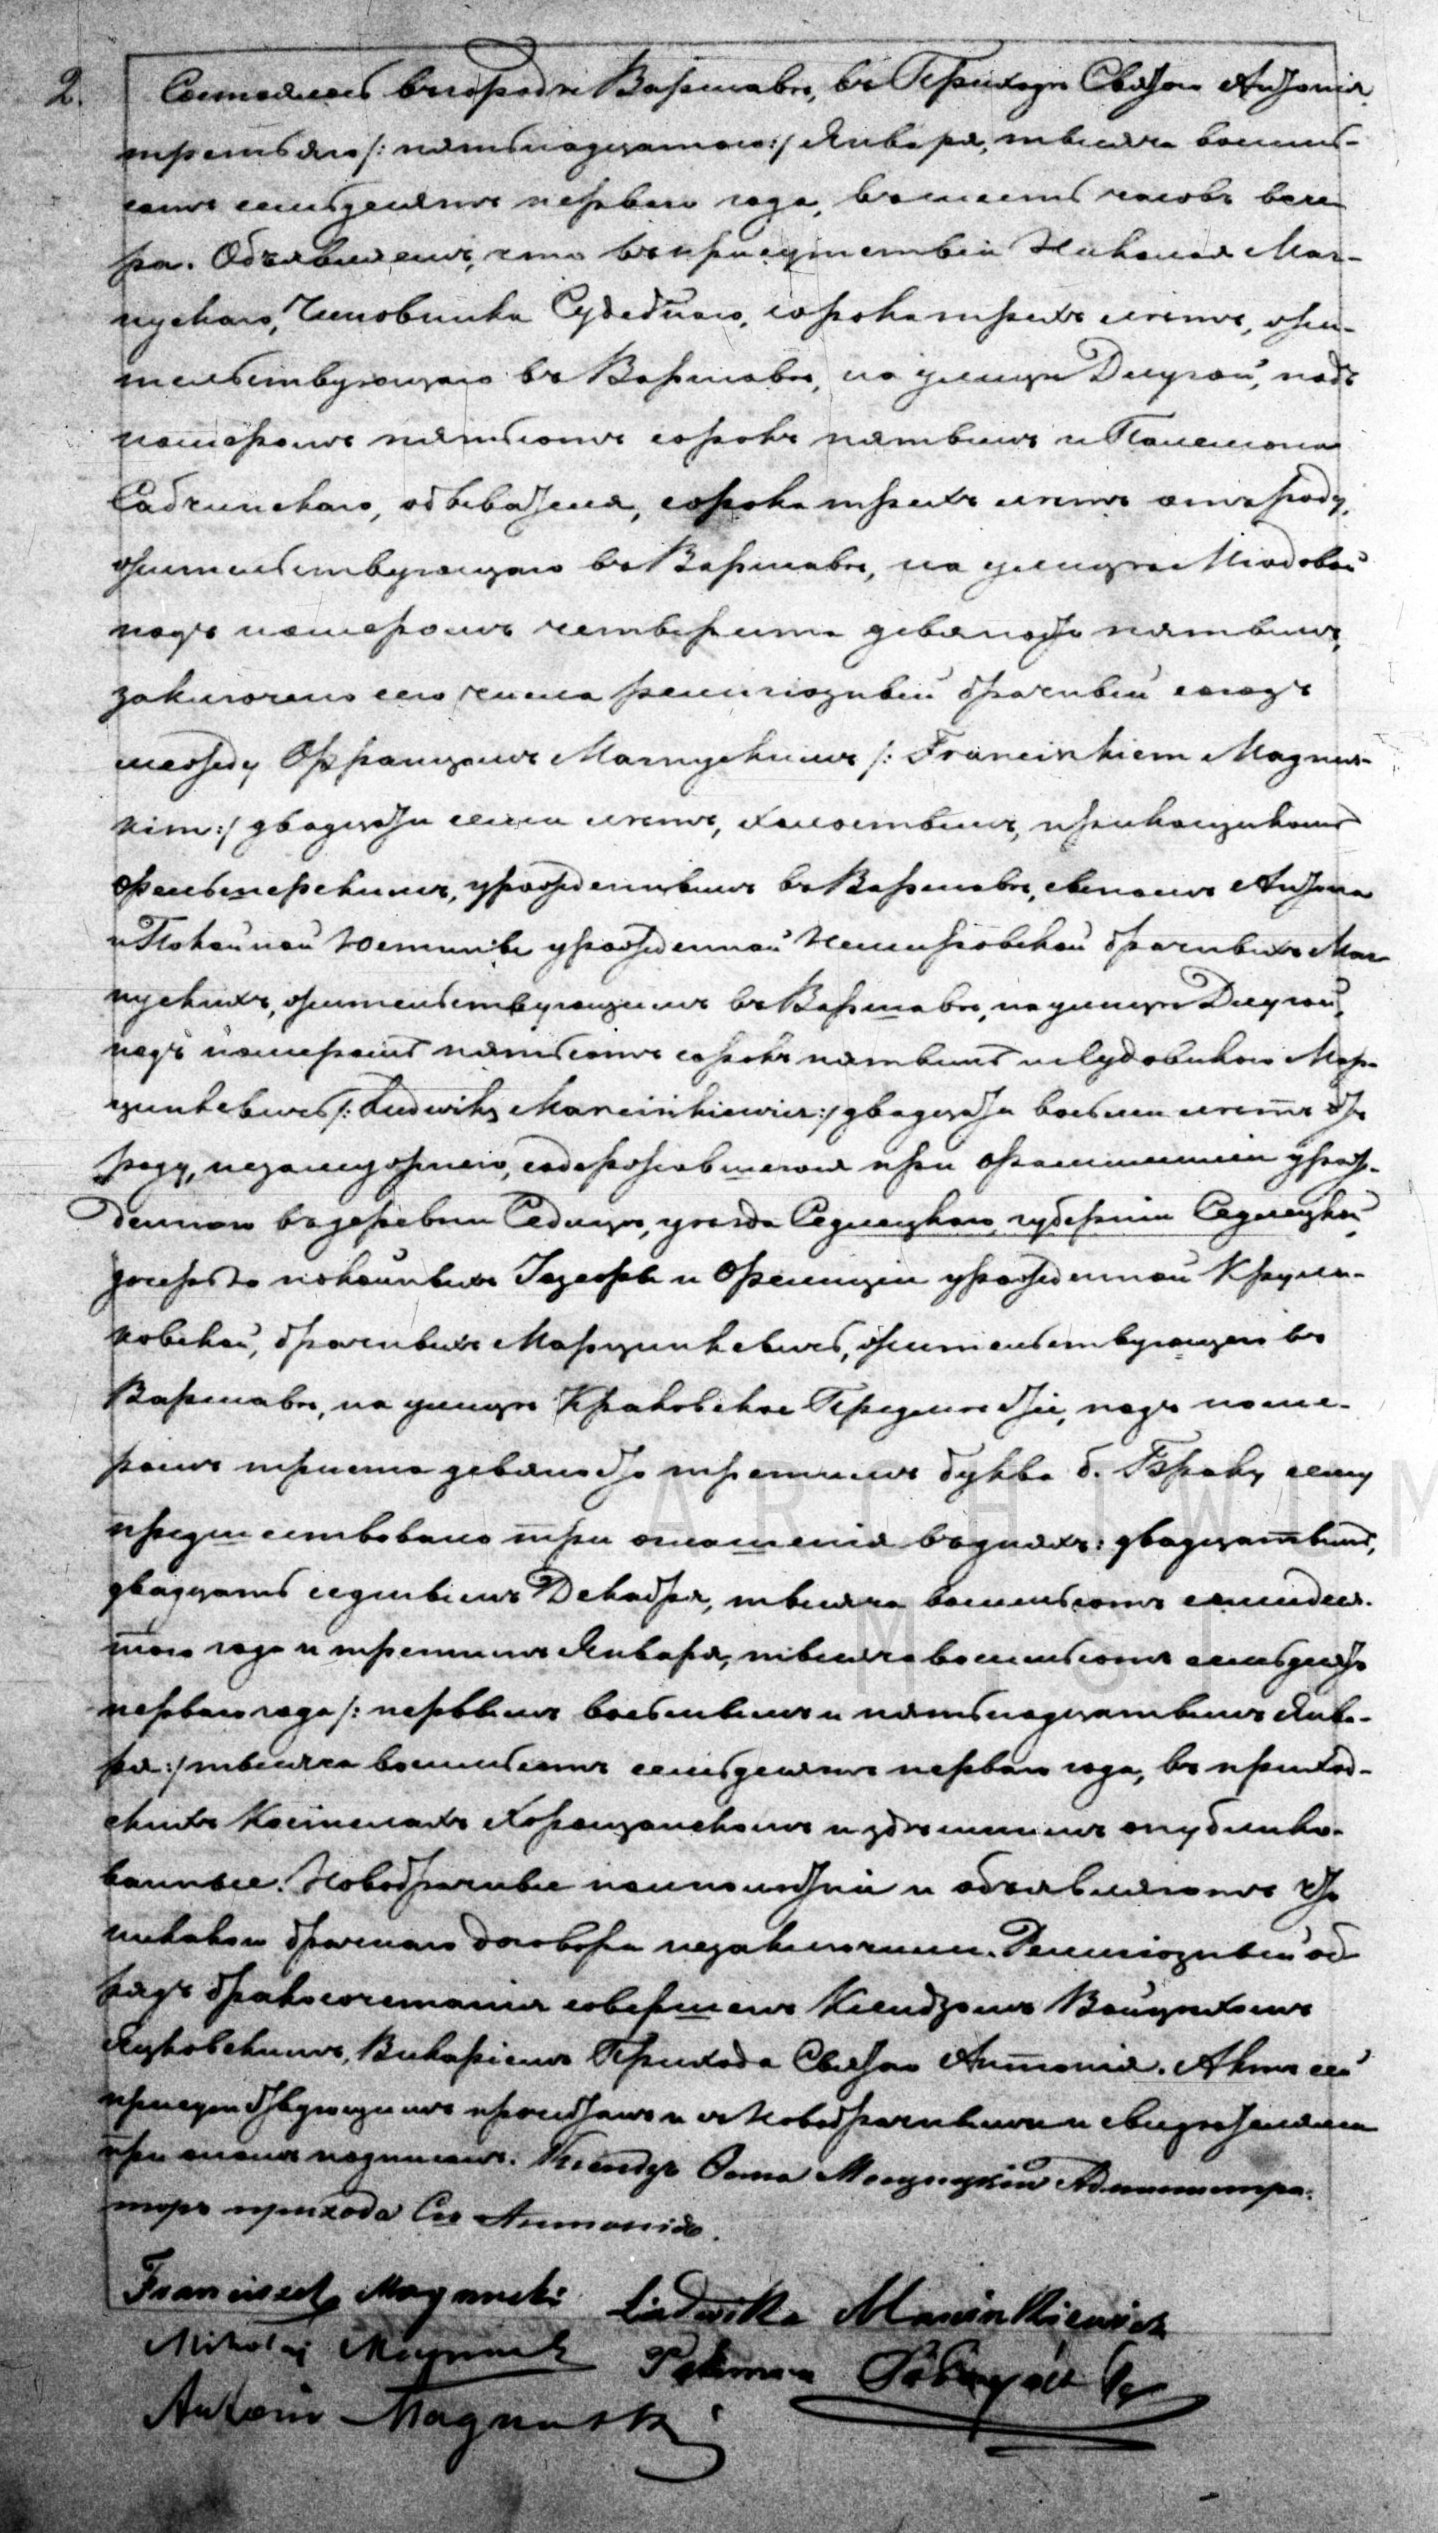 2. Состоялось въ городѣ Варшавѣ, въ Приходѣ Святаго Антонія,
третьяго /: пятьнадцатаго :/ Января, тысяча восемь-
сотъ семьдесятъ перваго года, въ шесть часовъ вече
ра. Объявляемъ, что въ присутствіи Николая Маг-
нускаго, Чиновника Судебнаго, сорока трехъ лѣтъ, жи-
тельствующаго въ Варшавѣ, на улицѣ Длугой, подъ
номеромъ пятьсотъ сорокъ пятымъ и Палемона
Собчинскаго, обывателя, сорока трехъ лѣтъ отъ роду,
жительствующаго въ Варшавѣ, на улицѣ Міодовой
подъ номеромъ четыреста девяносто пятымъ,
заключено сего числа религіозный брачный союзъ
между Францомъ Магнускимъ /: Franciszkiem Magnus-
kim :/ двадцати семи лѣтъ, холостымъ, прикащикомъ
фельчерскимъ, урожденнымъ въ Варшавѣ, сыномъ Антона
и Покойной Юстины урожденной Немировской брачныхъ Маг
нускихъ, жительствующимъ въ Варшавѣ, на улицѣ Длугой,
подъ номеромъ пятьсотъ сорокъ пятымъ и Лудовикою Мар-
цинкевичъ /: Ludwiką Marcinkiewicz :/ двадцати восьми лѣтъ отъ
роду, незамужнею, содержавшеюся при фамиліи урож-
денною въ деревни Седлцѣ, уѣзда Седлецкаго, губерніи Седлецкой,
дочерью покойныхъ Іозефы и Фелиціи урожденной Крули-
ковской, брачныхъ Марцинкевичъ, жительствующею въ
Варшавѣ, на улицѣ Краковское Предмѣстіе, подъ номе-
ромъ триста девяносто третимъ буква б. Браку сему
предшествовало три оглашенія въ дняхъ: двадцатымъ,
двадцать седмымъ Декабря, тысяча восемьсотъ семидеся-
таго года и третимъ Января, тысяча восемьсотъ семьдесятъ
перваго года /: первымъ восьмымъ и пятьнадцатымъ Янва-
ря :/ тысяча восемьсотъ семьдесятъ перваго года, въ приход-
скихъ Костелахъ и здѣшнимъ опублико-
ванные. Новобрачные и объявляютъ что
никакого брачнаго договора незаключили. Религіозный об
рядъ бракосочетанія совершенъ Ксендзомъ Войцѣхомъ
Яцковскимъ, Викаріемъ Прихода Святаго Антонія. Актъ сей
присутствующимъ прочитанъ и съ Новобрачными и свидѣтелями
при ономъ подписанъ. Ксендзъ Администра-
торъ прихода Св Антонія.
Franciszek Magnuski Ludwika Marcinkiewicz
Mikołaj Magnuski
Antoni Magnuski